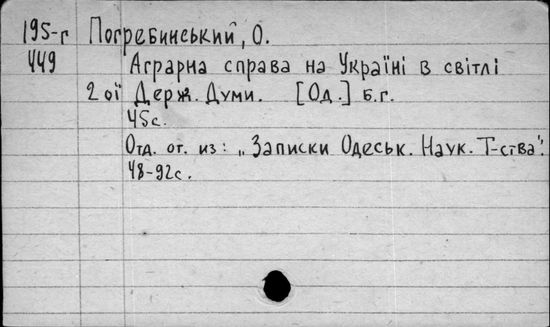 195-г Погребинський, О.
449 Аграрна справа на Україні в світлі
2ої Держ. Думи. [Од.] б.г.
45с.
Отд. от. из: „Записки Одеськ. Наук. Т-ства".
48-92с.